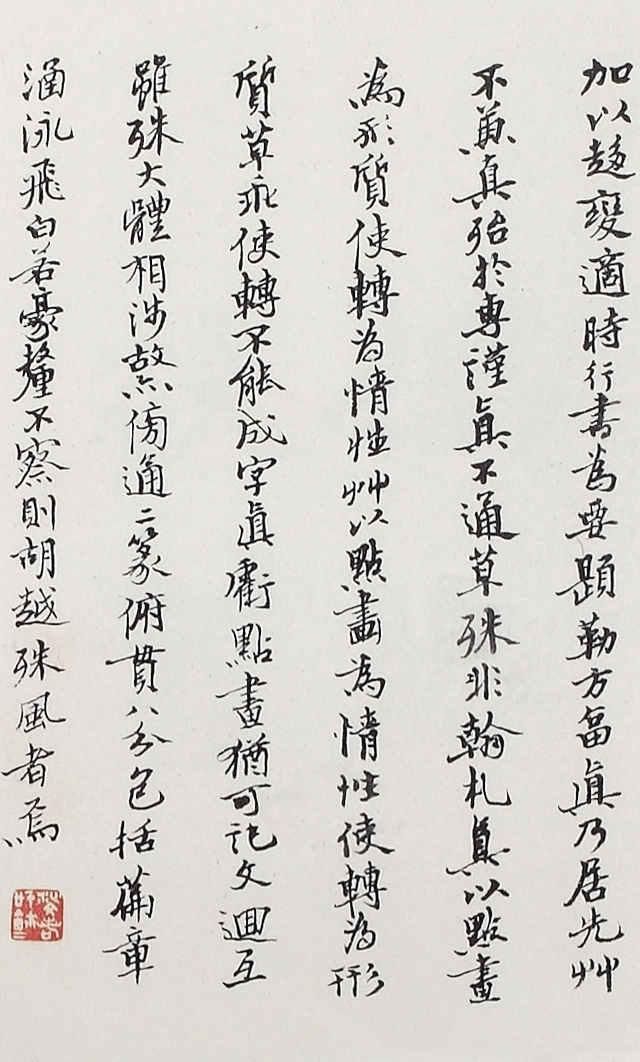 加以趍變適時行書為要題勒方畐真乃居先艸
不兼真殆於專謹真不通草殊非翰札真以點畫
為形質使轉為情性艸以點畫為情性使轉為形
質草乖使轉不能成字真虧點畫猶可記文迴互
雖殊大體相涉故亦傍通二篆俯貫八分包括萹章
涵泳飛白若豪釐不察則胡越殊風者焉